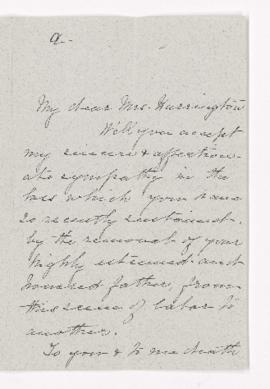 a-
My dear Mrs. Harrington
Will you accept
my sincere & affection-
ate sympathy in the
loss which you have
so recently sustained
by the removal of your
highly esteemed and
honored father, from
this scene of labor to
another.
To you & to me death